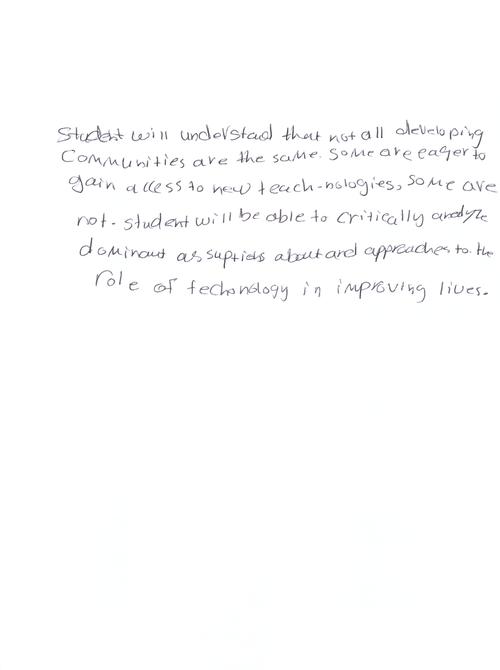 Student will understad that not all developing
Communities are the same. Some are eager to
gain access to new teach-nologies, some are
not. student will be able to critically analyze
dominant assuptids about and approaches to the
role of techonology in improving lives.